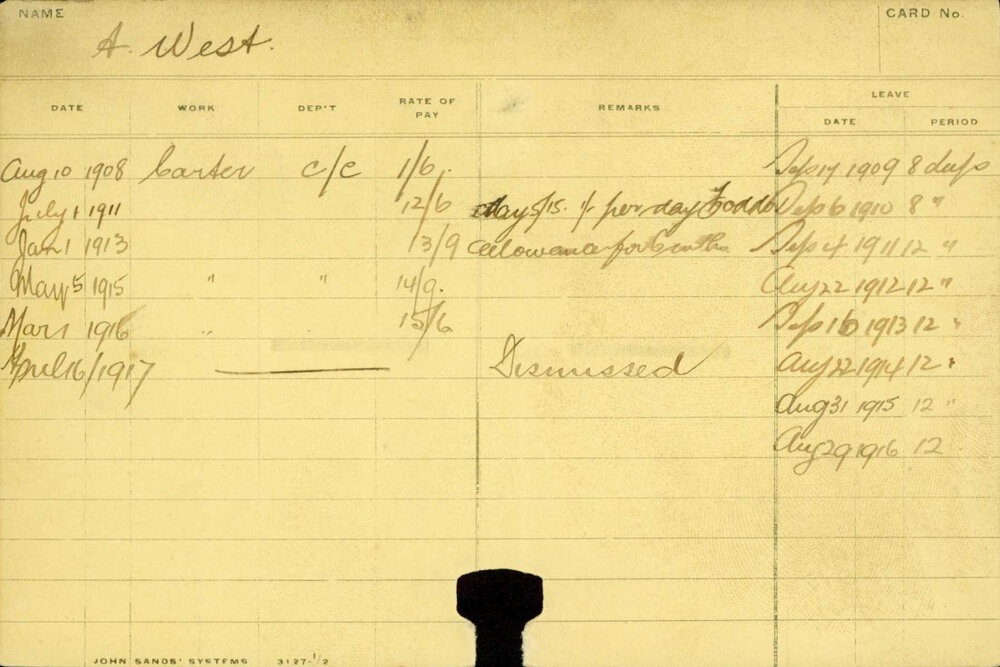 NAME
CARD No.
A. West.
DATE WORK DEP'T RATE OF PAY REMARKS LEAVE
DATE PERIOD
Aug 10 1908 Carter C/C 1/6. Sep 17 1909 8 days
July 1 1911 12/6 May 5/15. 1/- per day Fodder Sep 6 1910 8 "
Jan 1 1913 13/9 allowance for 6 mths. Sep 4 1911 12 "
May 5 1915 " " 14/9. Aug 22 1912 12 "
Mar 1 1916 " 15/6 Sep 16 1913 12 "
April 16/1917 Dismissed Aug 22 1914 12 "
Aug 31 1915 12 "
Aug 29 1916 12
JOHN SANDS' SYSTEMS 3127-1/2